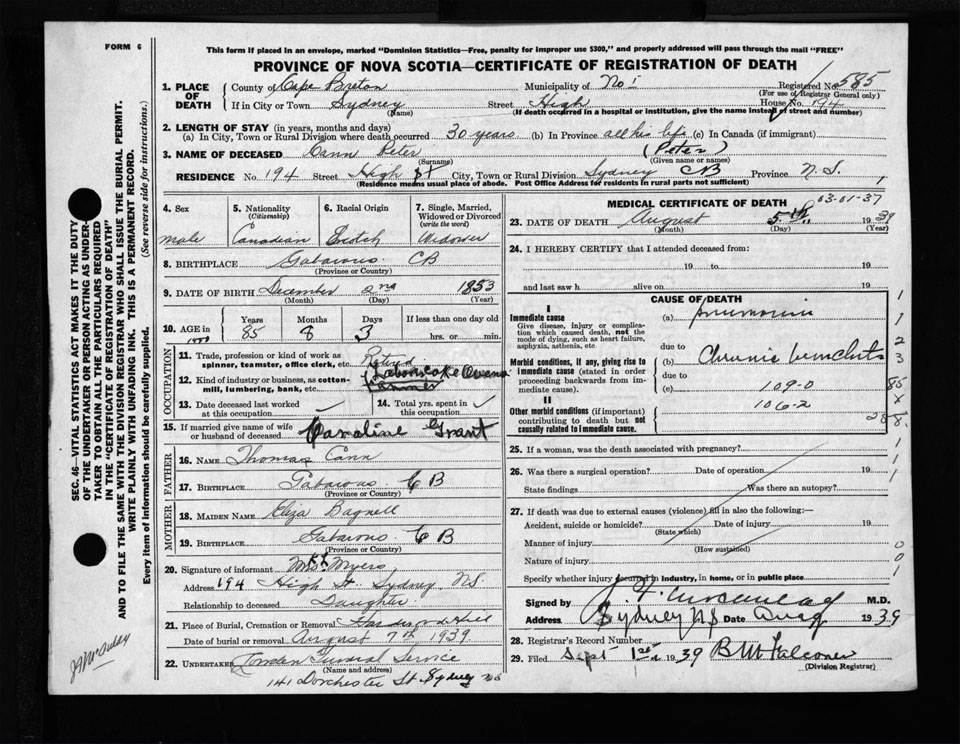 FORM 6
This form if placed in an envelope, marked "Dominion Statistics—Free, penalty for improper use $300," and properly addressed will pass through the mail "FREE"
PROVINCE OF NOVA SCOTIA—CERTIFICATE OF REGISTRATION OF DEATH
SEC. 46—VITAL STATISTICS ACT MAKES IT THE DUTY
OF THE UNDERTAKER OR PERSON ACTING AS UNDER-
TAKER TO OBTAIN ALL THE PARTICULARS REQUIRED
IN THE "CERTIFICATE OF REGISTRATION OF DEATH"
AND TO FILE THE SAME WITH THE DIVISION REGISTRAR WHO SHALL ISSUE THE BURIAL PERMIT.
WRITE PLAINLY WITH UNFADING INK. THIS IS A PERMANENT RECORD.
Every item of information should be carefully supplied. (See reverse side for instructions.)
1. PLACE OF DEATH County of Cape Breton Municipality of No 1 Registered No. 585
(For use of Registrar General only)
If in City or Town Sydney Street High House No. 194
(Name) (If death occurred in a hospital or institution, give the name instead of street and number)
2. LENGTH OF STAY (in years, months and days)
(a) In City, Town or Rural Division where death occurred 30 years (b) In Province all his life (c) In Canada (if immigrant)
3. NAME OF DECEASED Cann Peter (Peter)
(Surname) (Given name or names)
RESIDENCE No. 194 Street High St City, Town or Rural Division Sydney CB Province N.S.
(Residence means usual place of abode. Post Office Address for residents in rural parts not sufficient)
4. Sex 5. Nationality (Citizenship) 6. Racial Origin 7. Single, Married, Widowed or Divorced (write the word)
male Canadian Scotch Widower
8. BIRTHPLACE Gabarous CB
(Province or Country)
9. DATE OF BIRTH December 2nd 1853
(Month) (Day) (Year)
10. AGE in Years Months Days If less than one day old
85 8 3 hrs. or min.
OCCUPATION
11. Trade, profession or kind of work as spinner, teamster, office clerk, etc. Retired
12. Kind of industry or business, as cotton-mill, lumbering, bank, etc. Labourer Coke Ovens
Farmer
13. Date deceased last worked at this occupation 14. Total yrs. spent in this occupation
15. If married give name of wife or husband of deceased Caroline Grant
FATHER
16. NAME Thomas Cann
17. BIRTHPLACE Gabarous CB
(Province or Country)
MOTHER
18. MAIDEN NAME Eliza Bagnell
19. BIRTHPLACE Gabarous CB
(Province or Country)
20. Signature of informant Mrs Myers
Address 194 High St. Sydney NS.
Relationship to deceased Daughter
21. Place of Burial, Cremation or Removal
Date of burial or removal August 7th 1939
22. UNDERTAKER Funeral Service
(Name and address)
141 Dorchester St Sydney NS
MEDICAL CERTIFICATE OF DEATH
03-01-37
23. DATE OF DEATH August 5th 1939
(Month) (Day) (Year)
24. I HEREBY CERTIFY that I attended deceased from:
19 to 19
and last saw h alive on 19
CAUSE OF DEATH
I
Immediate cause (a) Pneumonia
Give disease, injury or complication which caused death, not the mode of dying, such as heart failure, asphyxia, asthenia, etc.
due to
Morbid conditions, if any, giving rise to immediate cause (stated in order proceeding backwards from immediate cause). (b) Chronic
due to
(c) 109-0
II
106-2
Other morbid conditions (if important) contributing to death but not causally related to immediate cause.
25. If a woman, was the death associated with pregnancy?
26. Was there a surgical operation? Date of operation 19
State findings Was there an autopsy?
27. If death was due to external causes (violence) fill in also the following:—
Accident, suicide or homicide? Date of injury 19
(State which)
Manner of injury
(How sustained)
Nature of injury
Specify whether injury occurred in industry, in home, or in public place
Signed by M.D.
Address Sydney NS Date Aug 1939
28. Registrar's Record Number
29. Filed Sept 1st 1939 B M Falconer
(Division Registrar)